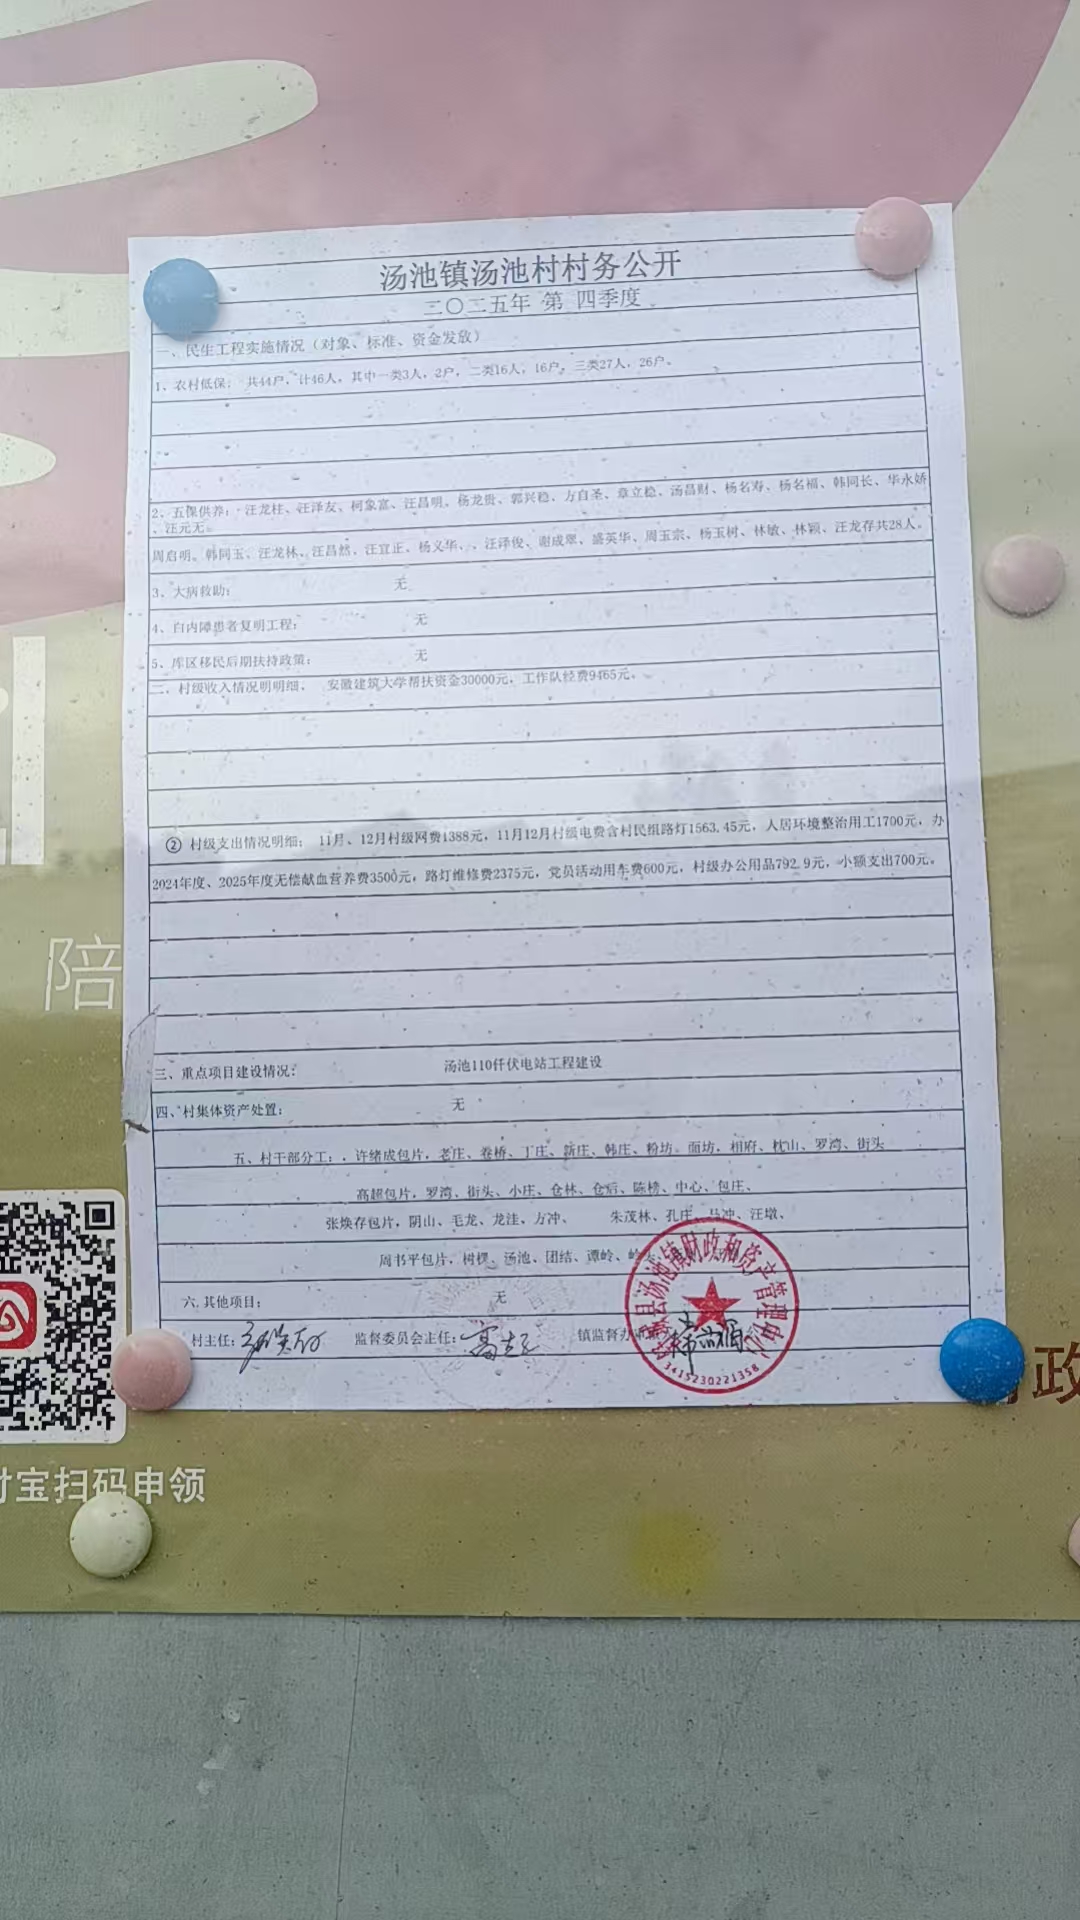 汤池镇汤池村村务公开
二〇二五年 第 四季度
一、民生工程实施情况（对象、标准、资金发放）
1、农村低保： 共44户，计46人，其中一类3人，2户，二类16人，16户，三类27人，26户。
2、五保供养：汪龙柱、汪泽友、柯象富、汪昌明、杨龙贵、郭兴稳、方自圣、章立稳、汤昌财、杨名寿、杨名福、韩同长、华永娇
、汪元无、
周启明、韩同玉、汪龙林、汪昌然、汪宜正、杨义华、、汪泽俊、谢成翠、盛英华、周玉宗、杨玉树、林敏、林颖、汪龙存共28人。
3、大病救助： 无
4、白内障患者复明工程： 无
5、库区移民后期扶持政策： 无
二、村级收入情况明明细、 安徽建筑大学帮扶资金30000元，工作队经费9465元。
② 村级支出情况明细： 11月、12月村级网费1388元，11月12月村级电费含村民组路灯1563.45元，人居环境整治用工1700元，办
2024年度、2025年度无偿献血营养费3500元，路灯维修费2375元，党员活动用车费600元，村级办公用品792.9元，小额支出700元。
三、重点项目建设情况： 汤池110仟伏电站工程建设
四、村集体资产处置： 无
五、村干部分工：、许绪成包片，老庄、卷桥、丁庄、新庄、韩庄、粉坊、面坊，相府、枕山、罗湾、街头
高超包片，罗湾、街头、小庄、仓林、仓后、陈榜、中心、包庄、
张焕存包片，阴山、毛龙、龙洼、方冲、 朱茂林、孔庄、马冲、汪墩、
周书平包片，树棵、汤池、团结、谭岭、岭
六.其他项目： 无
村主任： 监督委员会主任：高超 镇监督办
汤池镇财政和资产管理中心
3415230221358
陪
付宝扫码申领
政